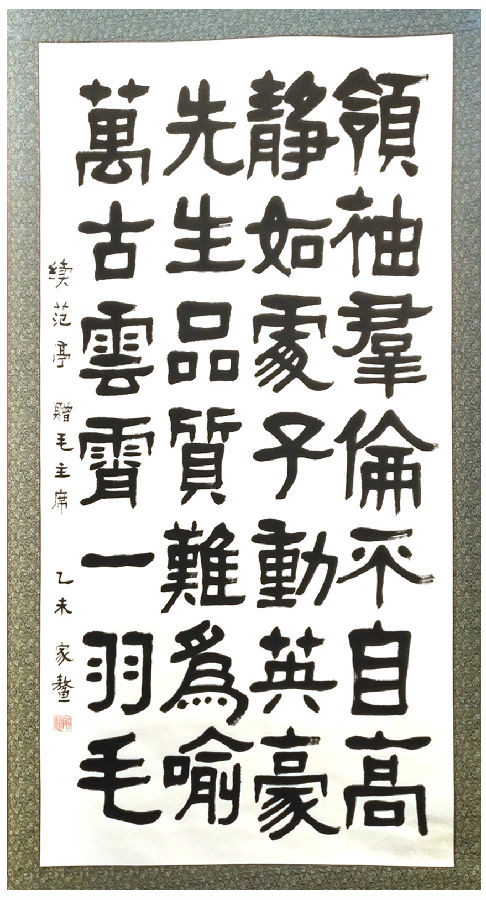 領袖羣倫不自高
静如處子動英豪
先生品質難爲喻
萬古雲霄一羽毛
续范亭 贈毛主席 乙未 家鳌